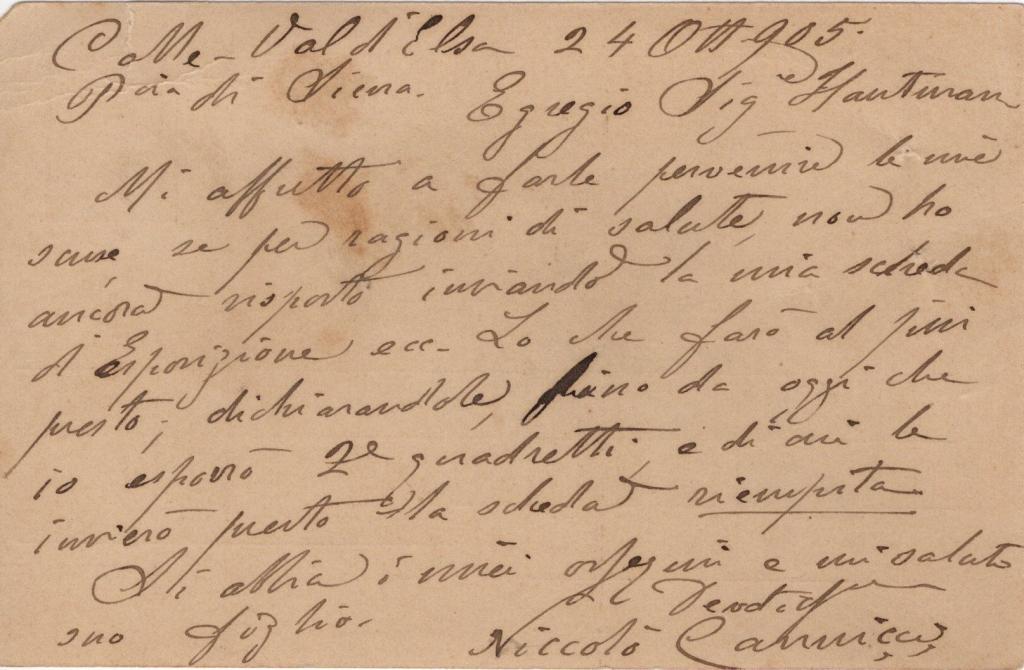 Colle-Val d'Elsa 24 Ott 905.
Pcia di Siena. Egregio Sige Hautman
Mi affretto a farle pervenire le mie
scuse se per ragioni di salute, non ho
ancora risposto inviando la mia scheda
d'Esposizione ecc- Lo che farò al più
presto; dichiarandole, fino da oggi che
io esporrò 2e quadretti, e di cui le
invierò presto la scheda riempita
Si abbia i miei ossequi e mi saluti
suo figlio. Devotissmo
Niccolò Cannicci